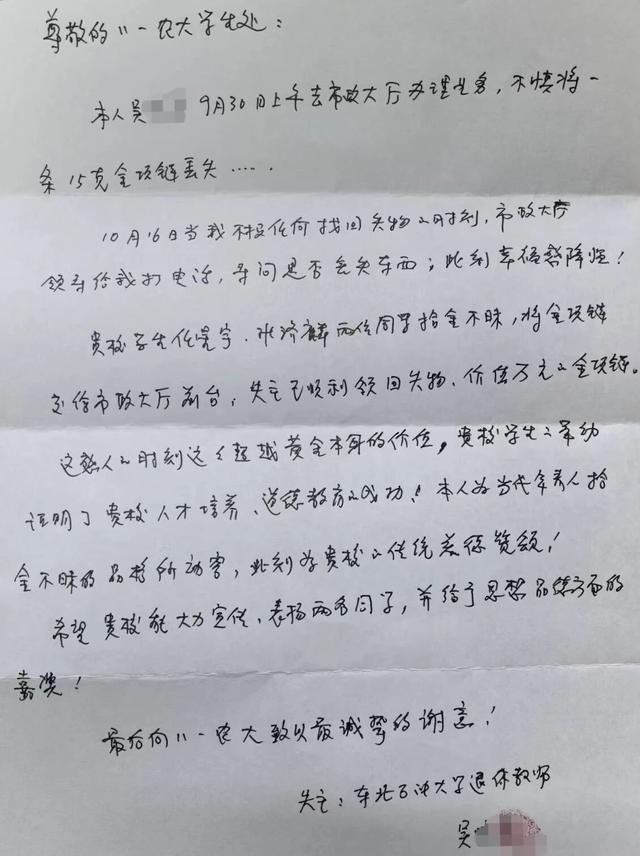 尊敬的八一农大学生处：
本人吴 9月30日上午去市政大厅办理业务，不慎将一
条15克金项链丢失……
10月16日当我不报任何找回失物之时刻，市政大厅
领导给我打电话，寻问是否丢失东西；此刻幸福降临！
贵校学生任 宇、张济麟两位同学拾金不昧，将金项链
交给市政大厅前台，失主已顺利领回失物、价值万元之金项链。
这感人之时刻远远超越黄金本身的价值，贵校学生之举动
证明了贵校人才培养、道德教育之成功！本人为当代年青人拾
金不昧的品格所动容，此刻为贵校之传统美德赞颂！
希望贵校能大力宣传、表扬两名同学，并给予思想品德方面的
嘉奖！
最后向八一农大致以最诚挚的谢意！
失主：东北石油大学退休教师
吴